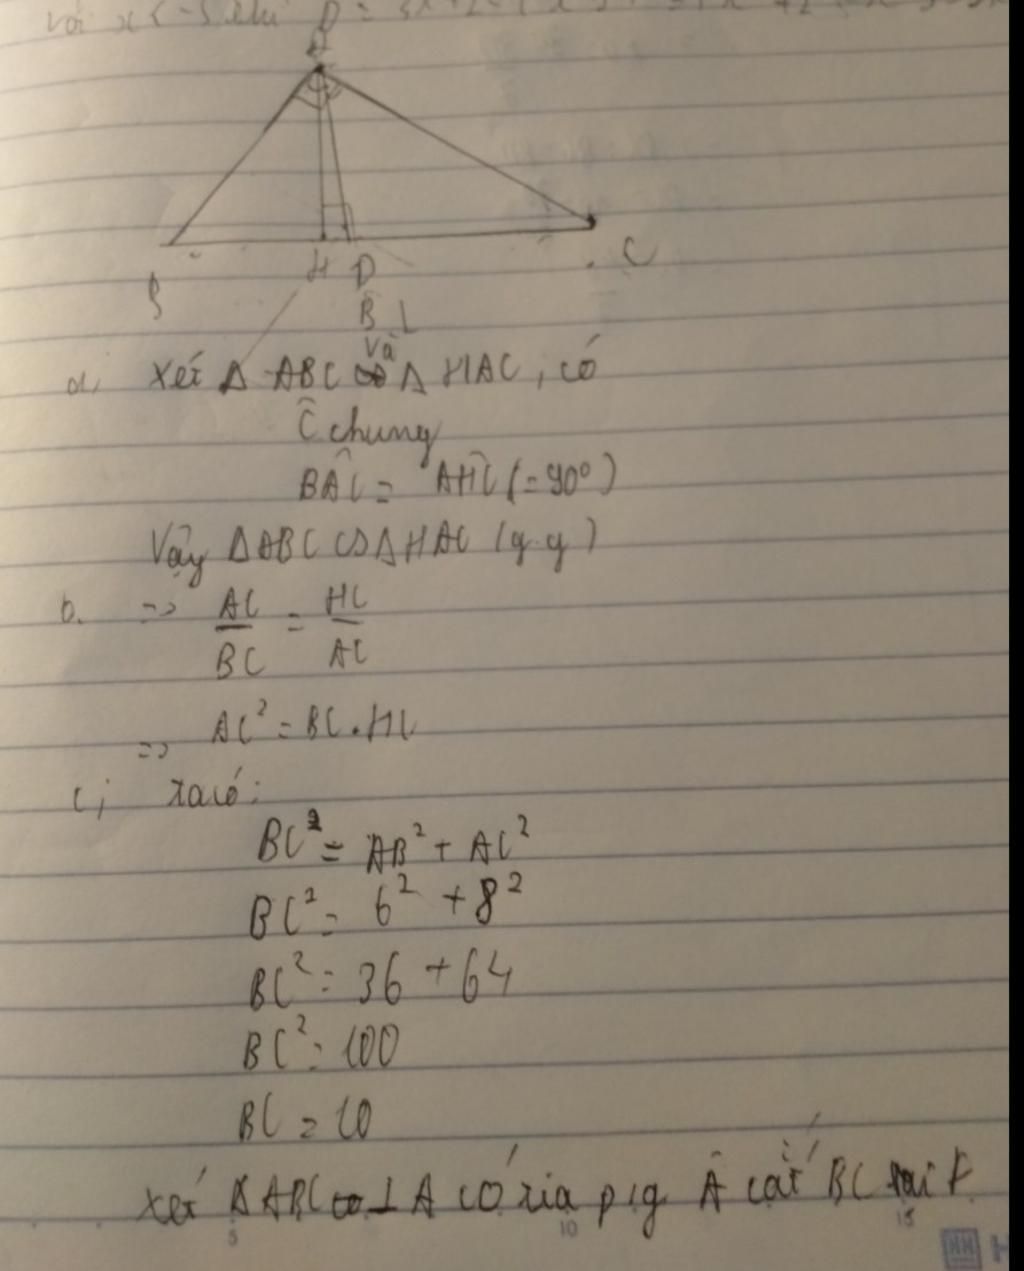 với x < -3 thì
A
B
H D
C
B L
a, xét Δ ABC và Δ HAC, có
Ĉ chung
BÂC = AĤC (= 90°)
Vậy ΔABC ∽ ΔHAC (g.g)
b. => AC/BC = HC/AC
=> AC² = BC.HC
c, Ta có:
BC² = AB² + AC²
BC² = 6² + 8²
BC² = 36 + 64
BC² = 100
BC = 10
xét ΔABC ⊥ A có tia p/g Â cắt BC tại
5 10 15
HH H